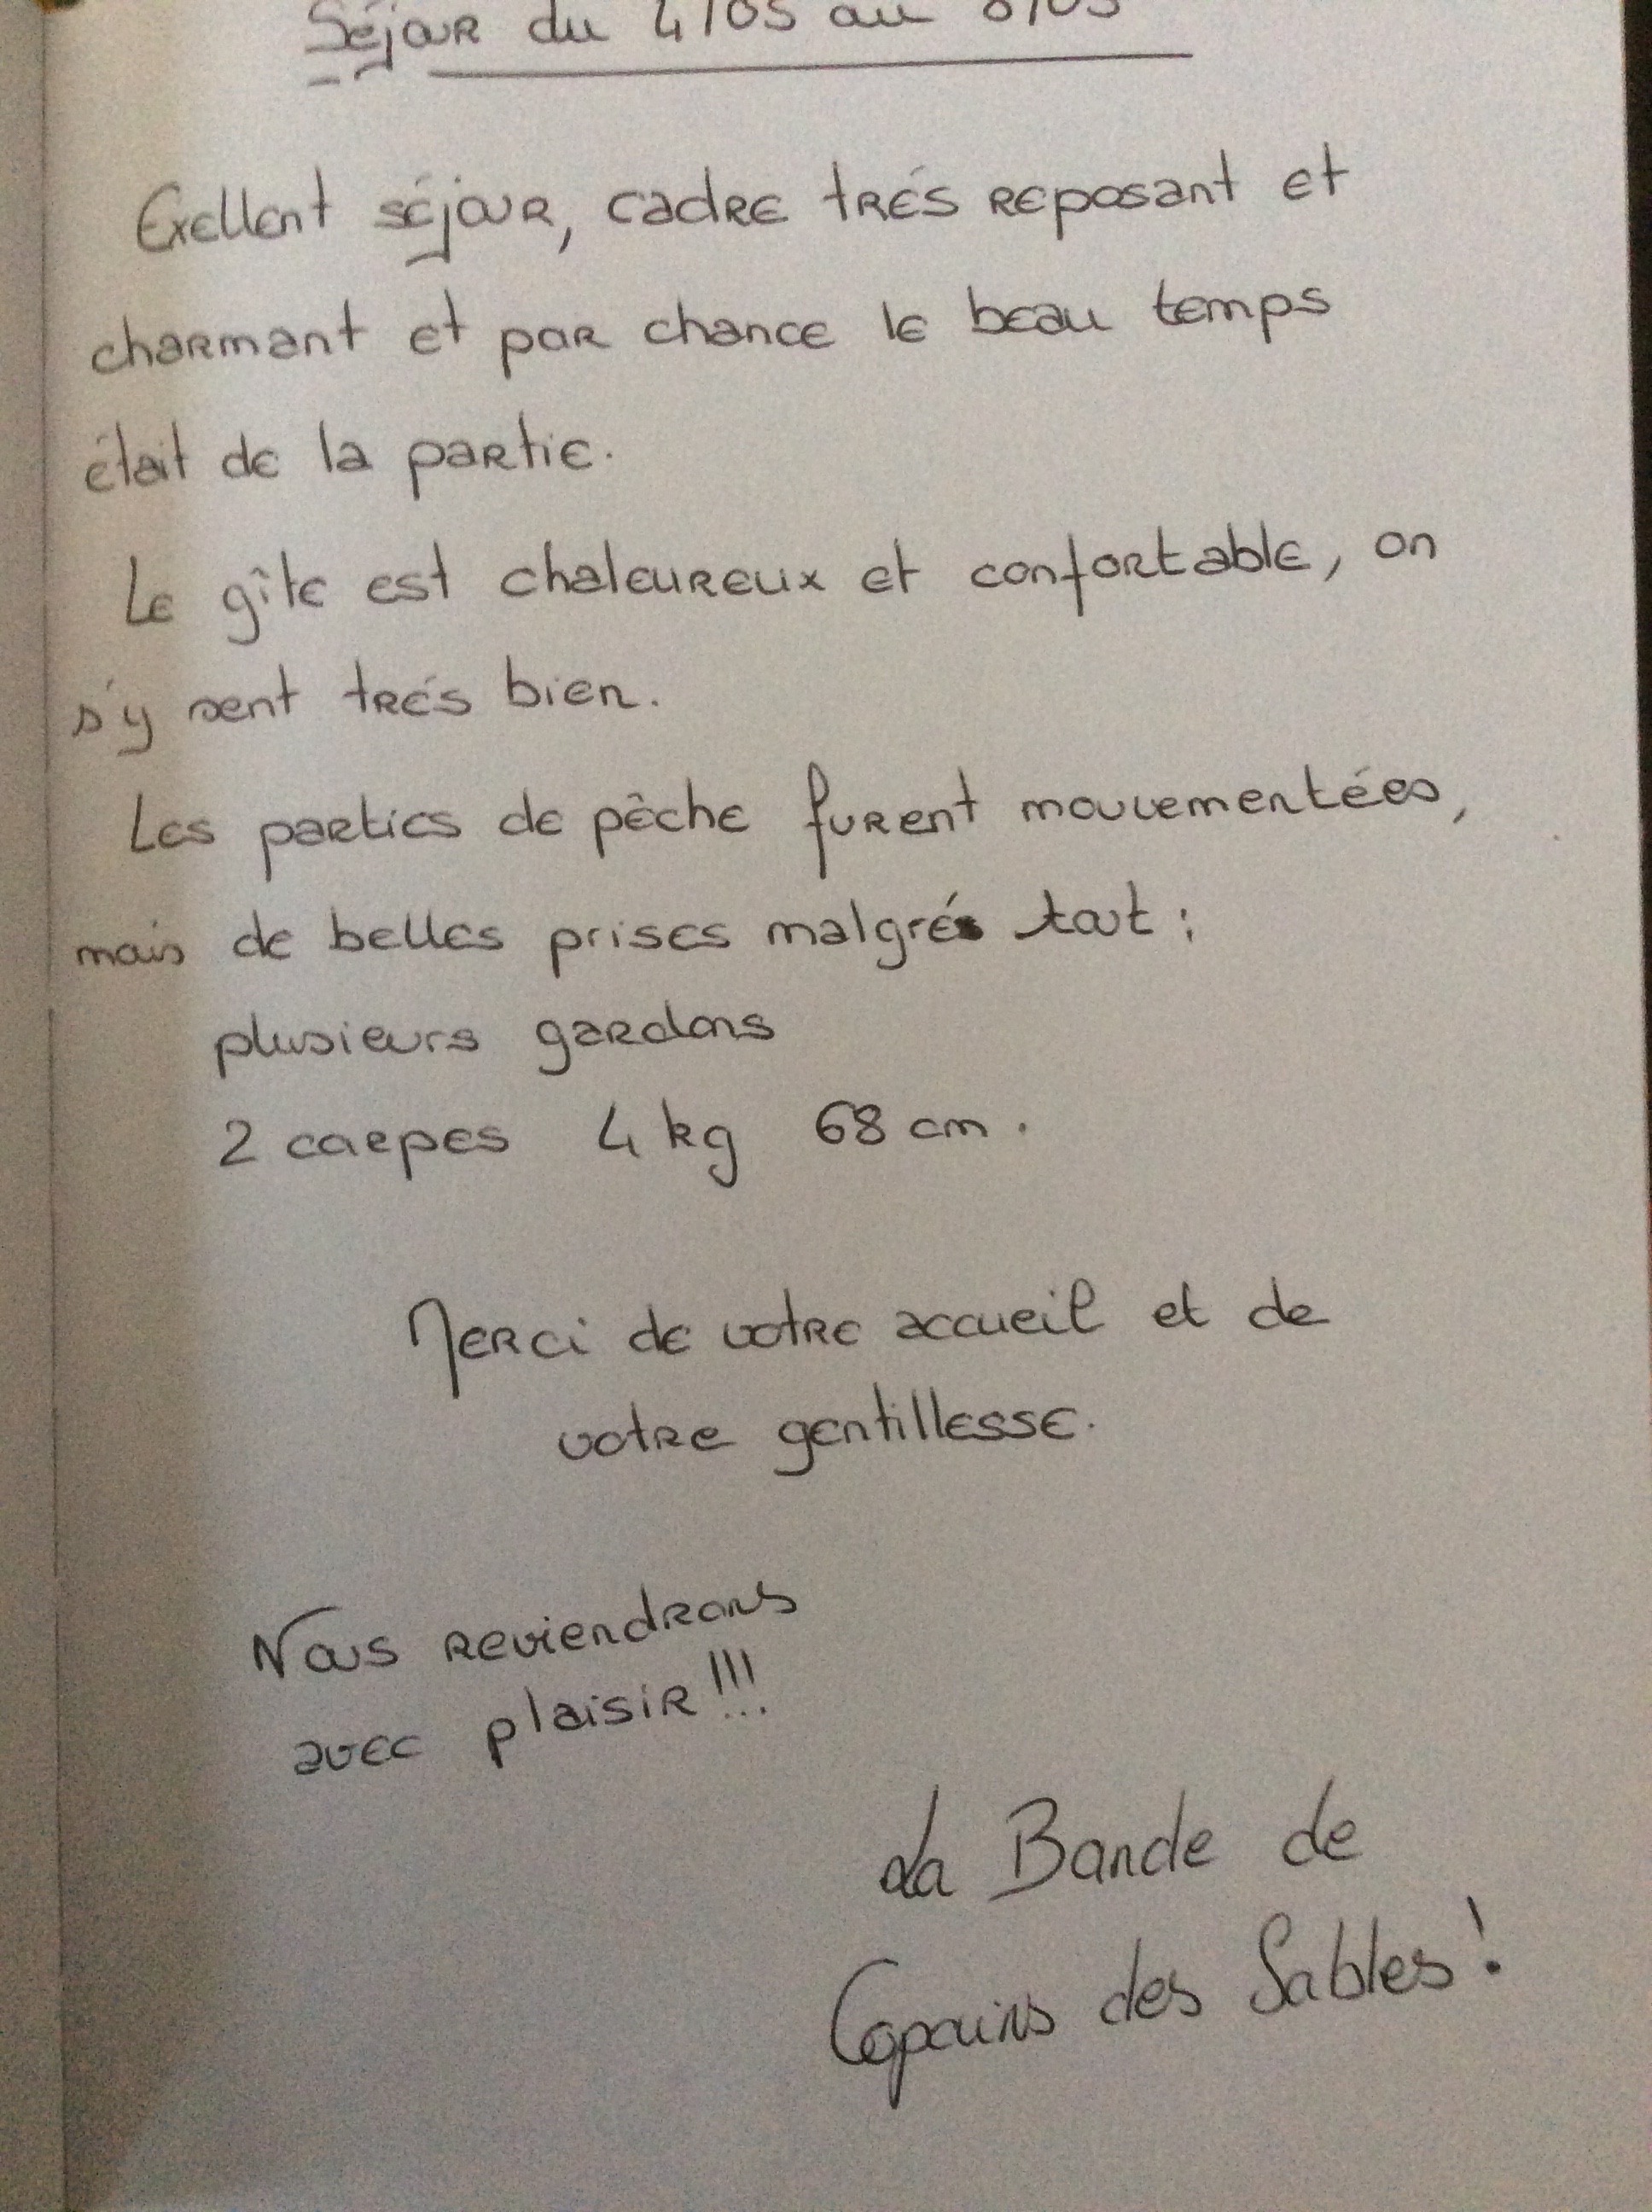 Séjour du 4/05 au 8/05
Exellent séjour, cadre trés reposant et
charmant et par chance le beau temps
était de la partie.
Le gîte est chaleureux et confortable, on
s'y sent trés bien.
Les parties de pêche furent mouvementées,
mais de belles prises malgrés tout :
plusieurs gardons
2 carpes 4 kg 68 cm.
Merci de votre accueil et de
votre gentillesse.
Nous reviendrons
avec plaisir !!!
La Bande de
Copains des Sables !